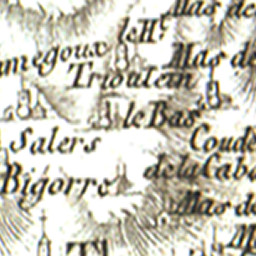 Mas de
le M.ᵗ
amegoux
Mas de
Trioulein
le Bas
Salers
Coude
de la Caba
Bigorre
Mas de